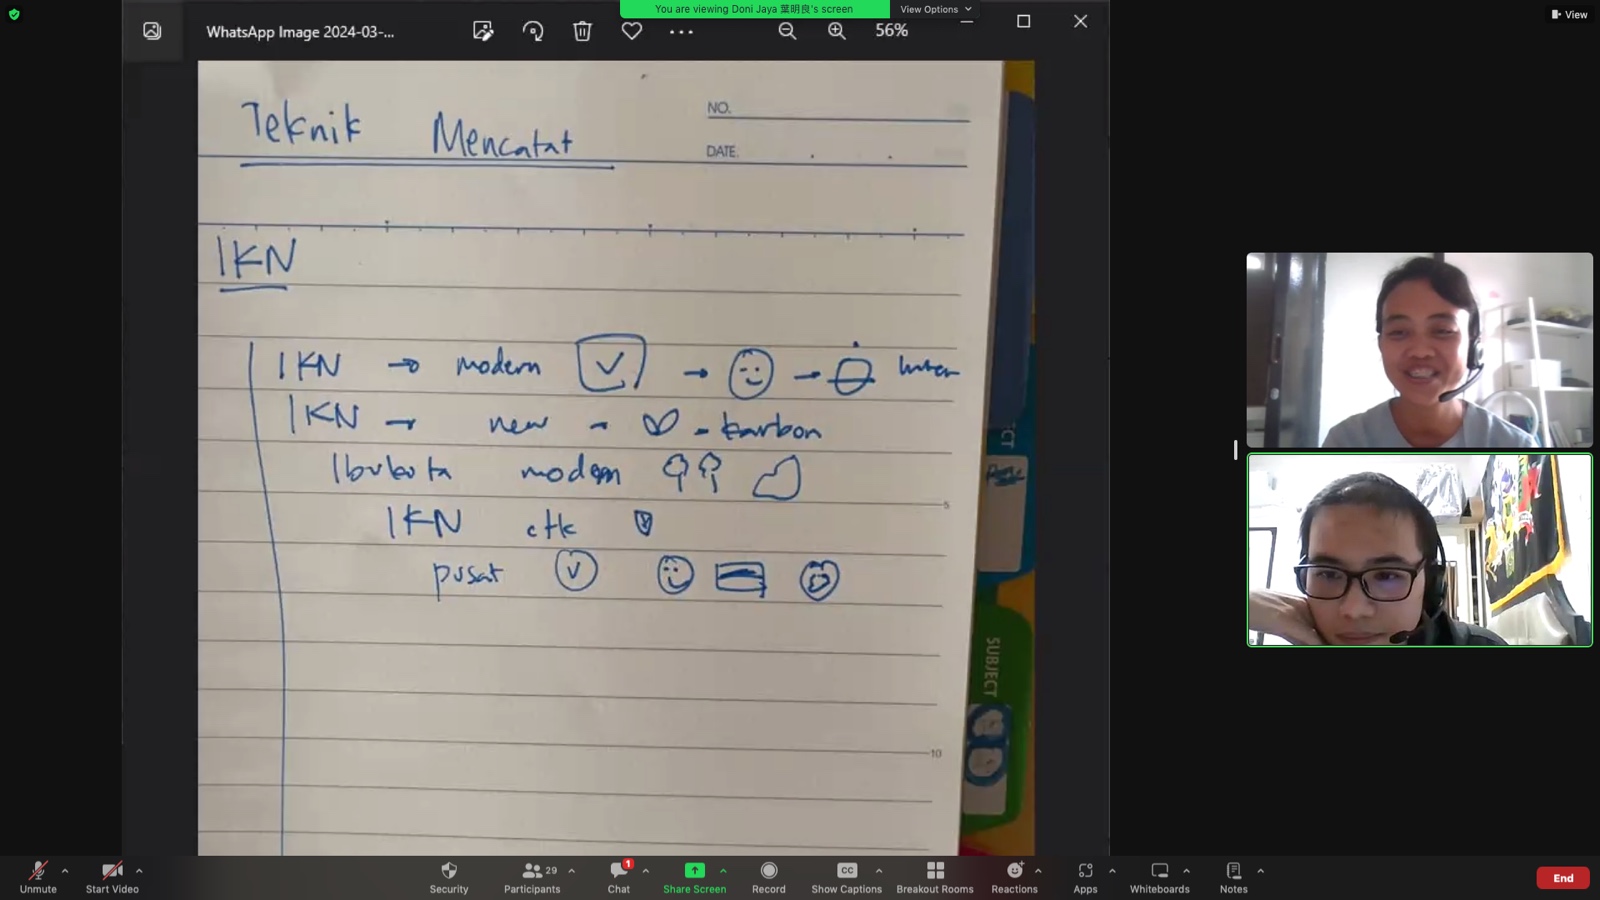 You are viewing Doni Jaya 葉明良's screen
View Options
View
WhatsApp Image 2024-03-...
56%
Teknik Mencatat
NO.
DATE.
IKN
IKN → modern → → Inter
IKN → new - - karbon
Ibukota modern
5
IKN ctk
pusat
SUBJECT
10
Unmute
Start Video
Security
Participants 29
Chat 1
Share Screen
Record
CC
Show Captions
Breakout Rooms
Reactions
Apps
Whiteboards
Notes
End